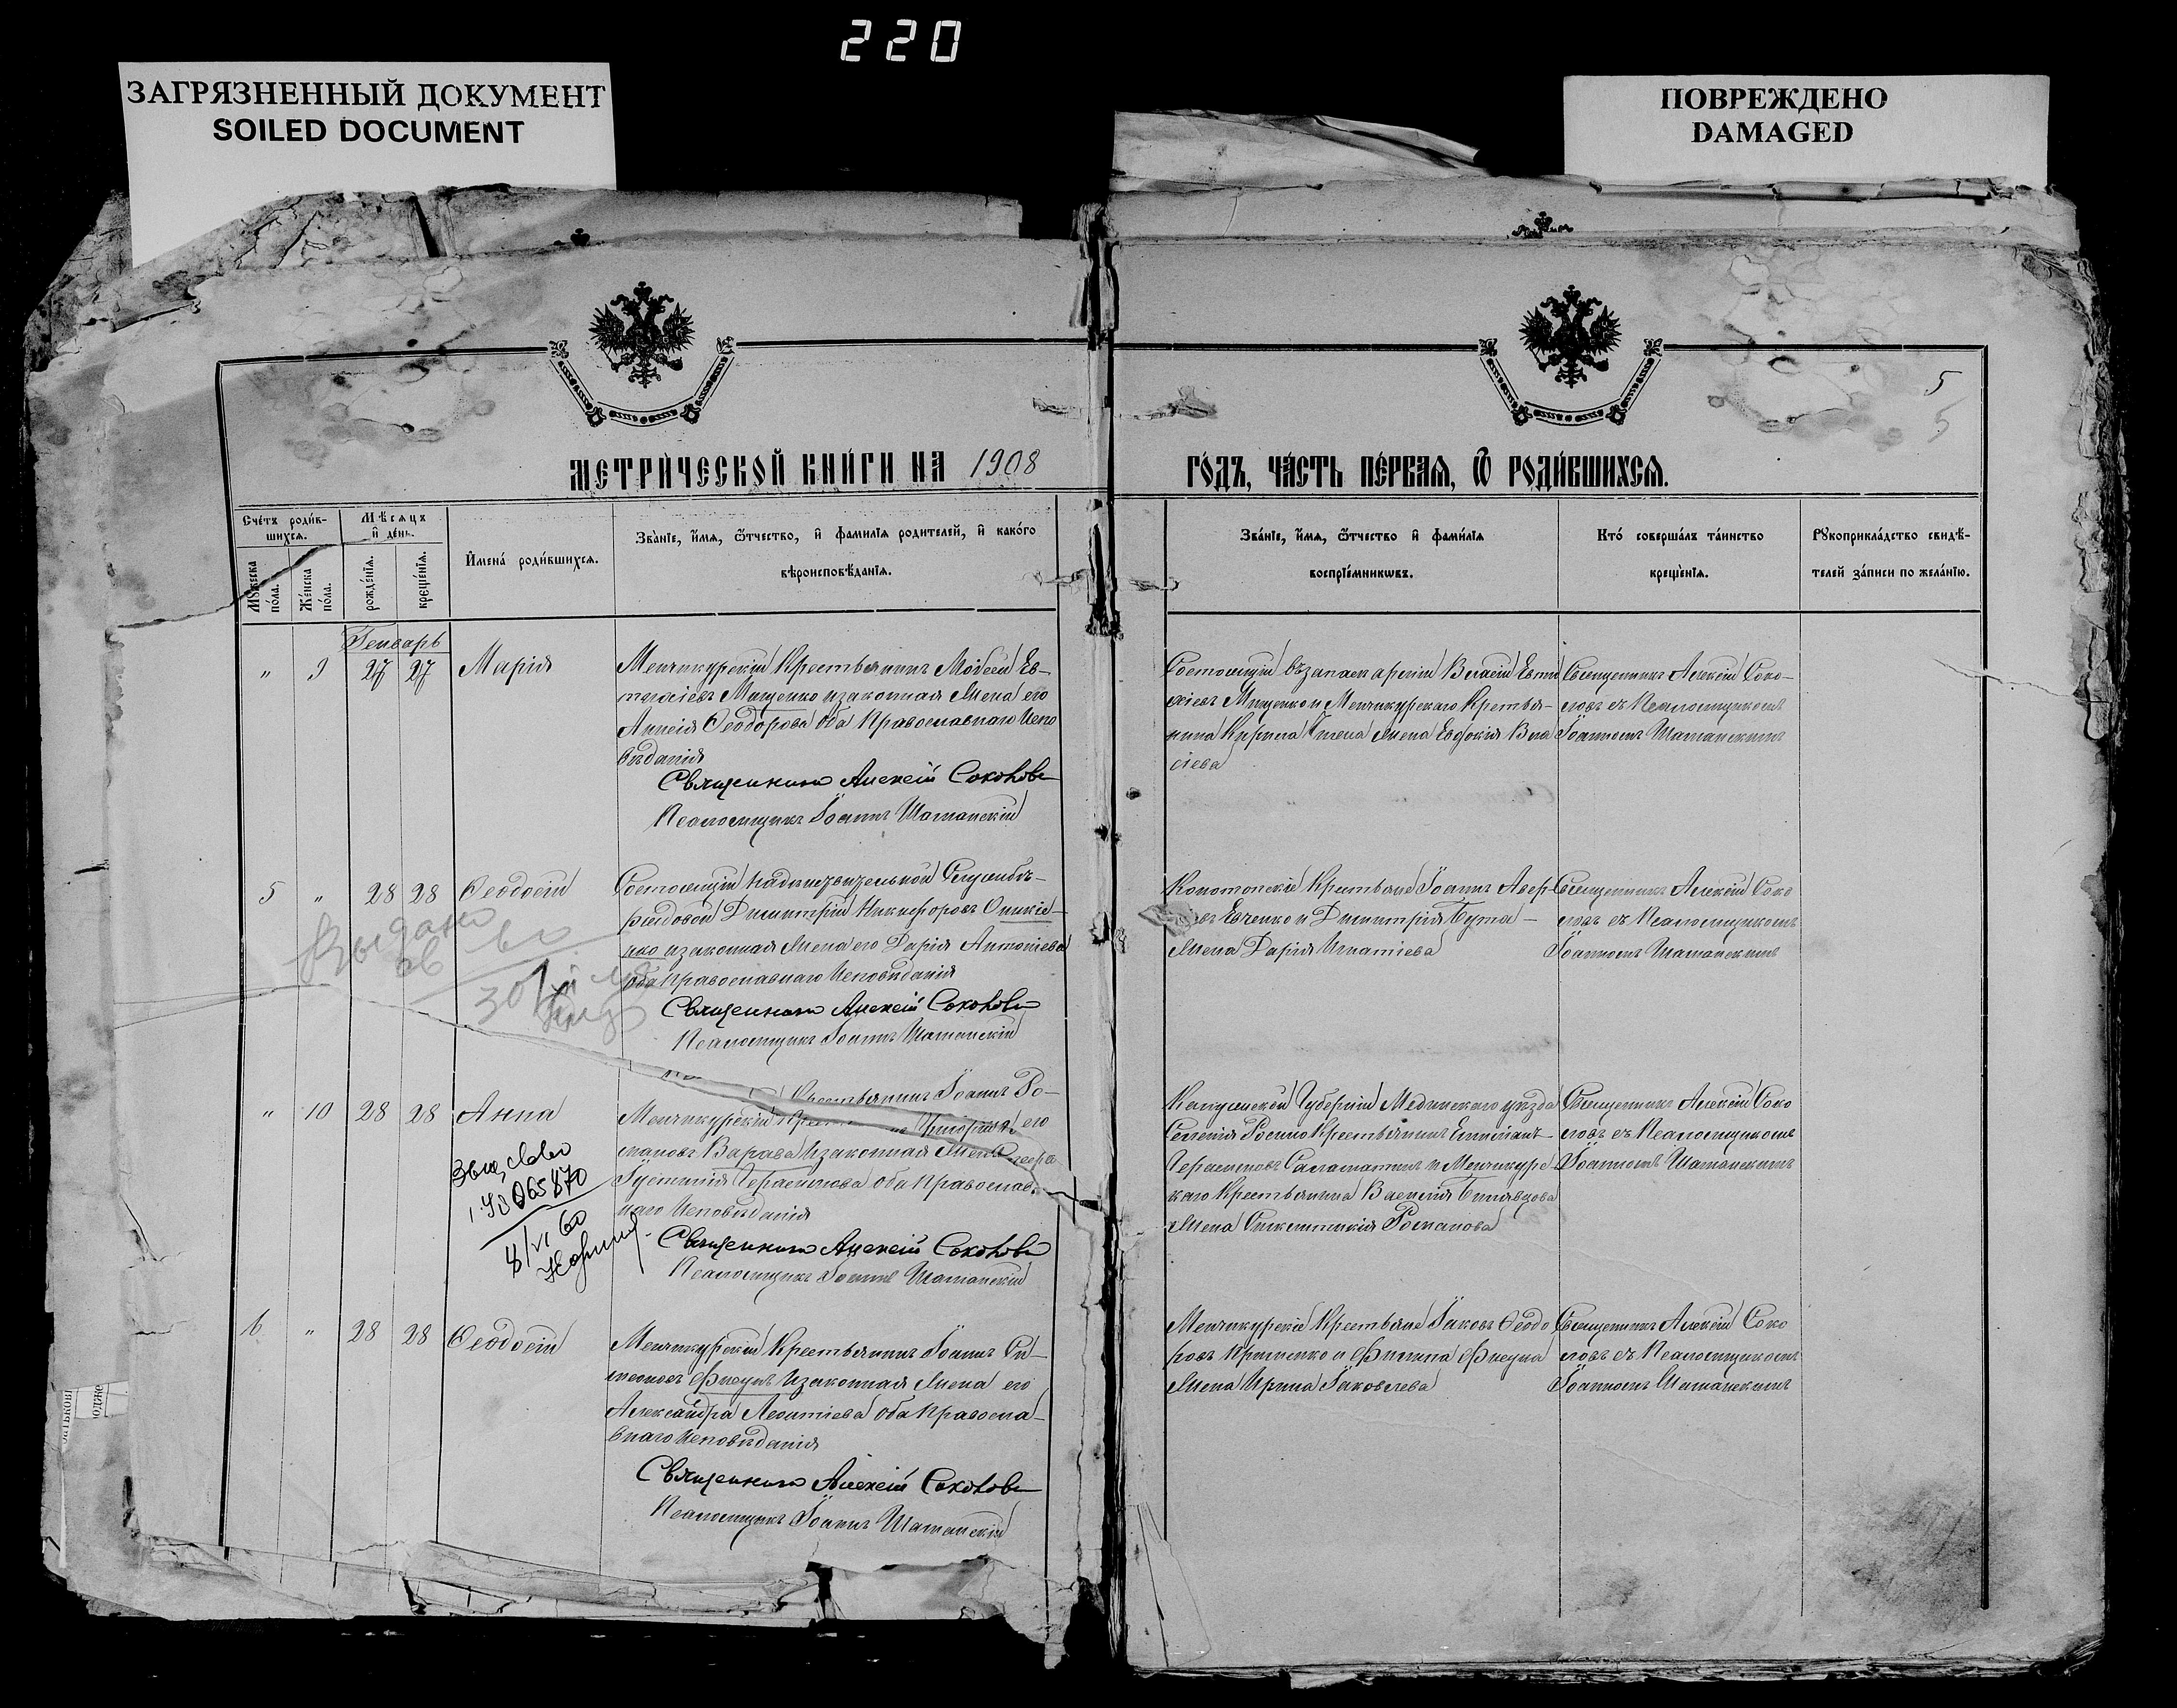 220
ЗАГРЯЗНЕННЫЙ ДОКУМЕНТ
SOILED DOCUMENT
ПОВРЕЖДЕНО
DAMAGED
5
5
МЕТРИ́ЧЕСКОЙ КНИ́ГИ НА 1908
ГО́ДЪ, ЧА́СТЬ ПЕ́РВАЯ, Ѿ РОДИ́ВШИХСЯ.
Сче́тъ роди́в-
шихся.
Мѣсяцъ
и де́нь.
Мꙋжеска
по́ла.
Же́нска
по́ла.
рожде́нїя.
креще́нїя.
Имена̀ роди́вшихся.
Зва́нїе, и́мя, ѻ҆́тчество, и҆ фами́лїя родителей, и҆ како́го
вѣроисповѣ́данїя.
Зва́нїе, и́мя, ѻ҆́тчество и҆ фами́лїя
воспрїе́мникѡвъ.
Кто́ соверша́лъ та́инство
креще́нїя.
Рꙋкоприкла́дство свидѣ́-
телей за́писи по жела́нїю.
Генварь
" 9 27 27 Марія
Менчикурскій Крестьянинъ Моѵсей Ев-
Мищенко и законная жена его
Анисія Ѳеодорова оба Православнаго Испо
вѣданія
Священникъ Алексій Соколовъ
Псаломщикъ Іоаннъ Шаманскій
Состоящій въ запасѣ арміи Власій Евти
хіевъ Мищенко и Менчикурскаго Крестья-
нина жена Евдокія Вла
сіева
Священникъ Алексій Соко-
ловъ съ Псаломщикомъ
Іоанномъ Шаманскимъ
5 " 28 28 Ѳеодосій
Состоящій на дѣйствительной Службѣ-
рядовой Димитрій Никифоровъ Оникіе-
нко и законная жена его Дарія Антоніева
оба Православнаго Исповѣданія
Священникъ Алексій Соколовъ
Псаломщикъ Іоаннъ Шаманскій
Конотопскіе Крестьяне Іоаннъ Авер-
Евченко и Димитрія Бута-
жена Дарія Игнатіева
Священникъ Алексій Соко
ловъ съ Псаломщикомъ
Іоанномъ Шаманскимъ
Выдано
" 10 28 28 Анна
Крестьянинъ Іоаннъ Ро-
Менчикурскій
мановъ Варава и законная жена его
Іустинія Герасимова оба Православ-
наго Исповѣданія
Священникъ Алексій Соколовъ
Псаломщикъ Іоаннъ Шаманскій
Калужской Губерніи Медынскаго уѣзда
Селенія Росино Крестьянинъ Епифанъ
Герасимовъ Саламатинъ и Менчикурс-
каго Крестьянина Василія
жена Синклитикія Романова
Священникъ Алексій Соко
ловъ съ Псаломщикомъ
Іоанномъ Шаманскимъ
6 " 28 28 Ѳеодосій
Менчикурскій Крестьянинъ Іоаннъ Си-
меоновъ Фисунъ и законная жена его
Александра Леонтіева оба Правосла-
внаго Исповѣданія
Священникъ Алексій Соколовъ
Псаломщикъ Іоаннъ Шаманскій
Менчикурскіе Крестьяне Іаковъ Ѳеодо
ровъ и Филипа Фисуна
жена Ирина Іаковлева
Священникъ Алексій Соко
ловъ съ Псаломщикомъ
Іоанномъ Шаманскимъ